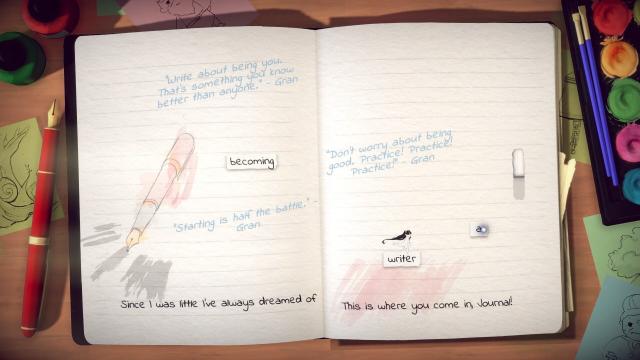 "Write about being you.
That's something you know
better than anyone." - Gran
becoming
"Starting is half the battle." -
Gran
Since I was little I've always dreamed of
"Don't worry about being
good. Practice! Practice!
Practice!" - Gran
a
writer
This is where you come in, Journal!